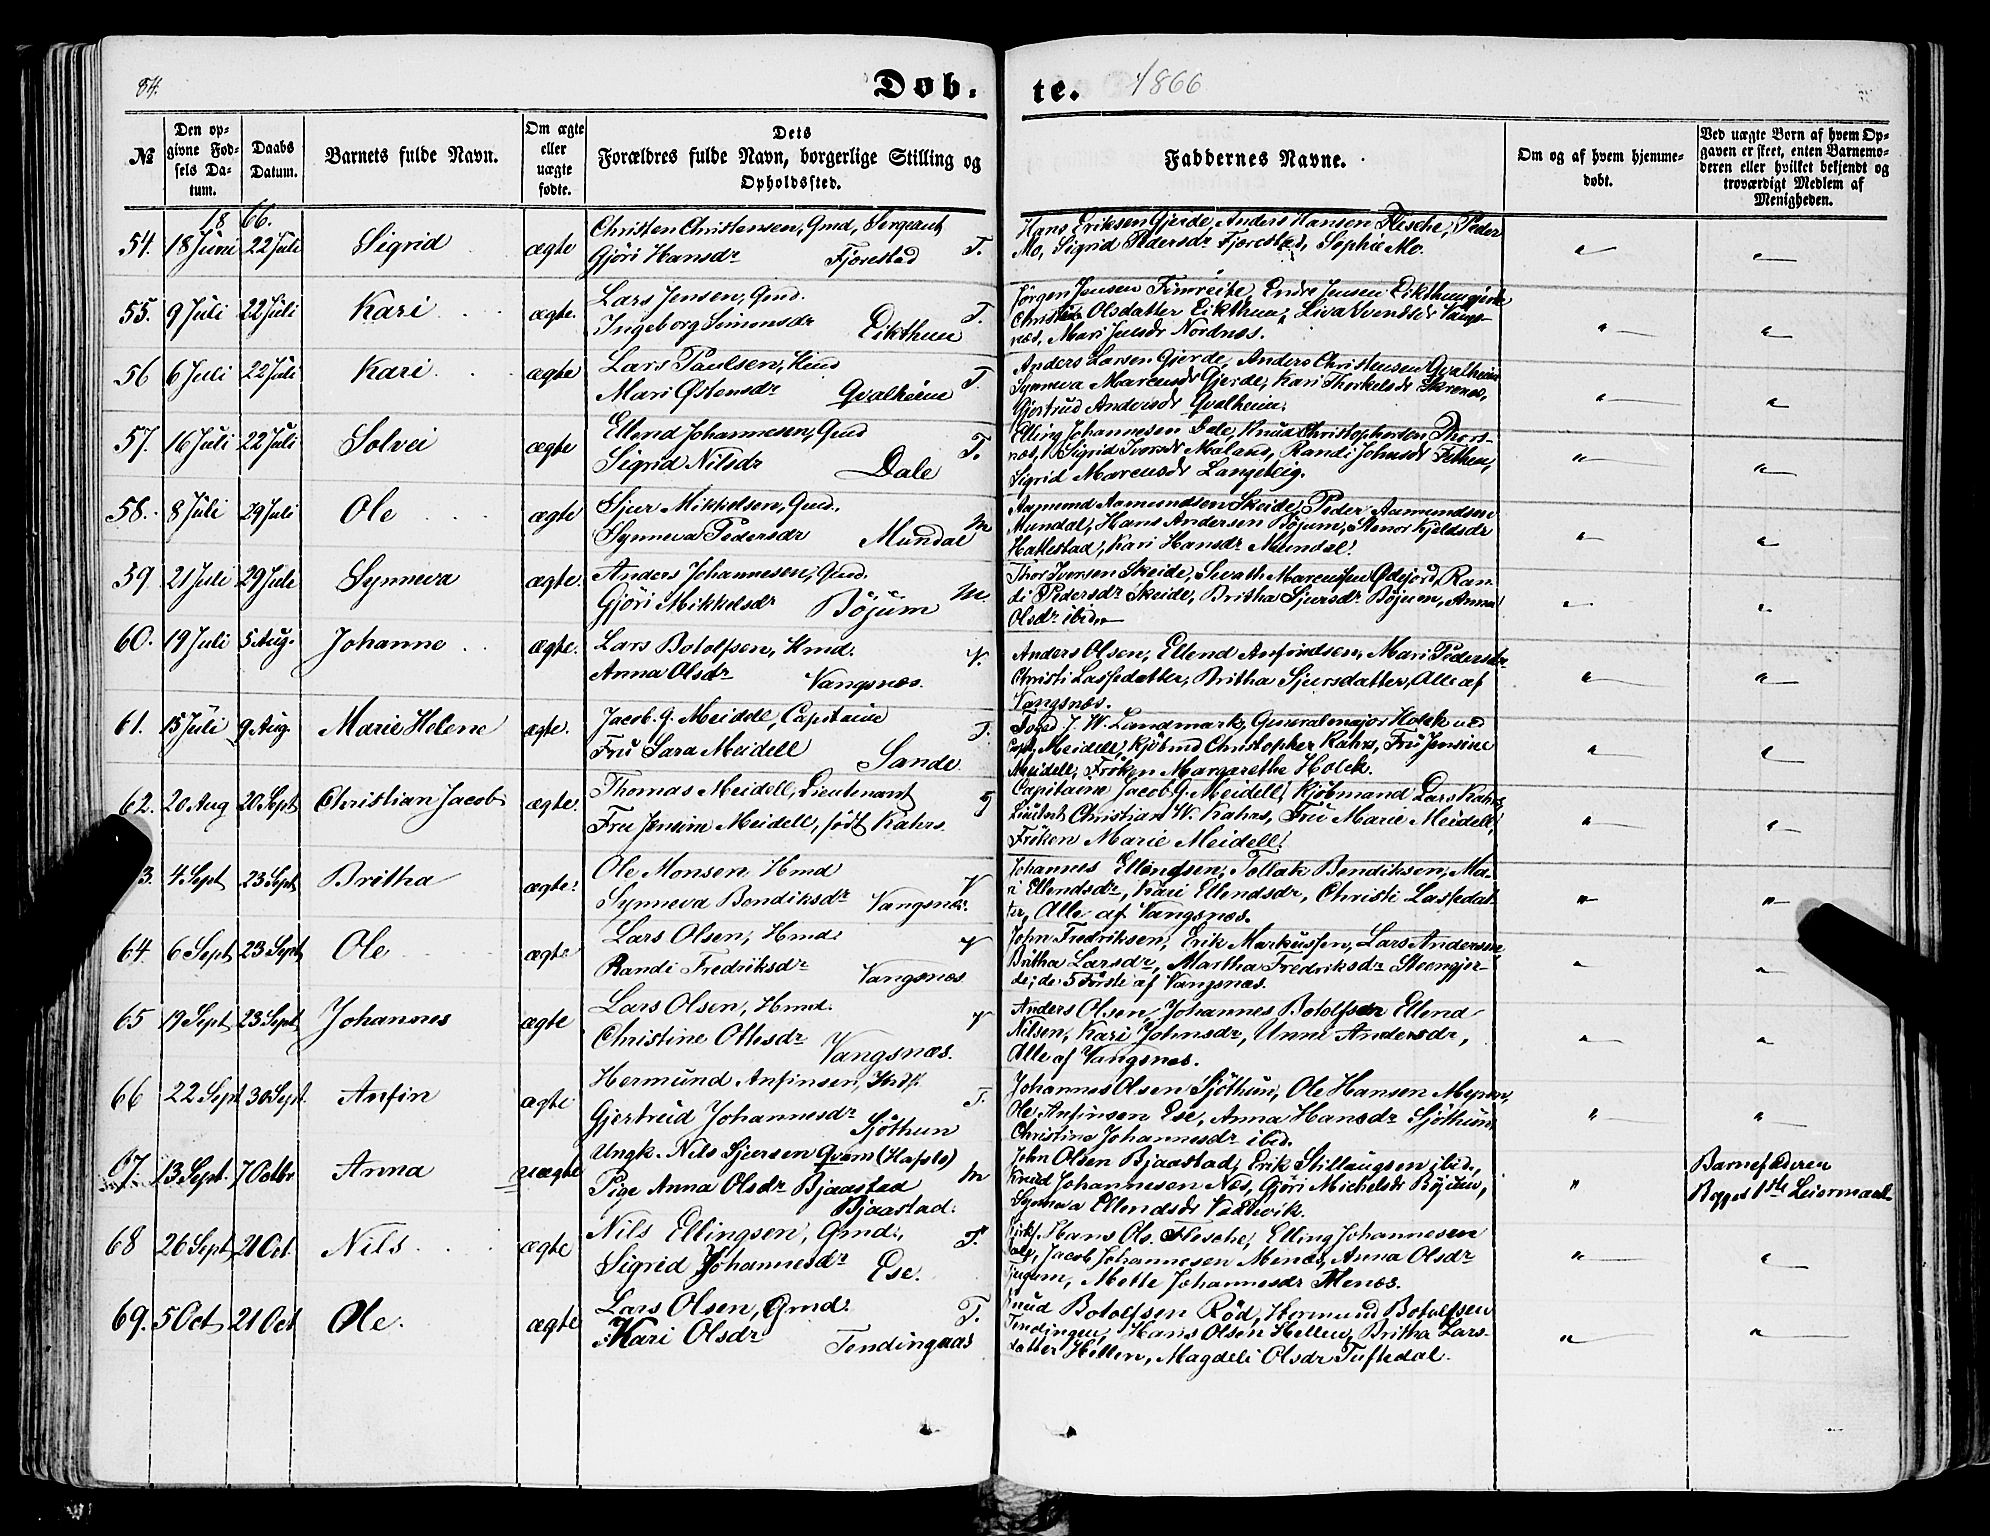 84.
Døb. te. 1866
№
Den opgivne Fødsels Datum.
Daabs Datum.
Barnets fulde Navn.
Om ægte eller uægte fødte.
Dets Forældres fulde Navn, borgerlige Stilling og Opholdssted.
Faddernes Navne.
Om og af hvem hjemmedøbt.
Ved uægte Børn af hvem Opgaven er skeet, enten Barnemoderen eller hvilket bekjendt og troværdigt Medlem af Menigheden.
1866.
54. 18 Juni 22 Juli Sigrid ægte
Christen Christensen, Gmd, Sergeant
Gjöri Hansdr Fjærestad T.
Hans Eriksen Gjerde, Anders Hansen Flesche, Peder
Mo, Sigrid Pedersdr Fjærestad, Sophie Mo.
55. 9 Juli 22 Juli Kari ægte.
Lars Jensen, Gmd.
Ingeborg Simonsdr Eikthun T.
Jörgen Jensen Fimreite, Endre Jensen Eikthungjerde
Christi Olsdatter Eikthun, Liva Svendsdr Vangs-
næs, Mari Julsdr Nordnæs.
56 6 Juli 22 Juli Kari ægte
Lars Paulsen, Hmd
Mari Østensdr Qvalheim T.
Anders Larsen Gjerde, Anders Christensen Qvalheim
Synneva Marcusdr Gjerde, Kari Thorkelsdr
Gjertrud Andersdr Qvalheim.
57. 16 Juli 22 Juli Solvei ægte
Ellend Johannesen, Gmd
Sigrid Nilsdr Dale T.
Elling Johannesen Dale, Knud Christophersen Thors-
næs, Sigrid Iversdr Mælans, Randi Johnsdr Fethen,
Sigrid Marcusdr Langeteig.
58. 8 Juli 29 Juli Ole ægte
Sjur Mikkelsen, Gmd.
Synneva Pedersdr Mundal M
Aamund Aamundsen Skeide, Peder Aamundsen
Mundal, Hans Andersen Böjum, Steinor Kjeldsdr
Hatlestad, Kari Hansdr Mundal.
59. 21 Juli 29 Juli Synneva ægte.
Anders Johannesen, Gmd.
Gjöri Mikkelsdr Böjum M.
Thor Iversen Skeide, Sivath Marcussen Ödejord, Ran-
di Pedersdr Skeide, Britha Sjursdr Böjum, Anna
Olsdr ibid.
60. 19 Juli 5 Aug. Johanne ægte.
Lars Botolfsen, Hmd.
Anna Olsdr Vangsnæs. V.
Anders Olsen, Ellend Anfindsen, Mari Pedersdr
Christi Lassedatter, Britha Sjursdatter, Alle af
Vangsnæs.
61. 15 Juli 9 Aug. Marie Helene ægte.
Jacob. G. Meidell, Capitaine
Fru Sara Meidell Sande. T.
Foged J. W. Landmark, Generalmajor Holck ved
Capt. Meidell, Kjöbmd Christopher Kahrs, Fru Jensine
Meidell, Fröken Margarethe Holck.
62. 20 Aug 20 Sept Christian Jacob ægte.
Thomas Meidell, Lieutenant
Fru Jensine Meidell, födt Kahrs
Capitaine Jacob G. Meidell, Kjöbmand Lars Kahrs
Christian W. Kahrs, Fru Marie Meidell,
Fröken Marie Meidell.
3. 4 Sept 23 Sept Britha ægte.
Ole Monsen Hmd
Synneva Bendiksdr Vangsnæs. V
Johannes Ellendsen, Tollak Bendiksen, Ma-
ri Ellendsdr, Kari Ellendsdr, Christi Lassedat-
ter, Alle af Vangsnæs.
64. 6 Sept 23 Sept Ole ægte
Lars Olsen, Hmd.
Randi Fredriksdr Vangsnæs V
John Fredriksen, Erik Markussen, Lars Andersen
Britha Larsdr, Martha Fredriksdr Steengjer-
de; de 5 Förste af Vangsnæs.
65 19 Sept 23 Sept Johannes ægte
Lars Olsen, Hmd.
Christine Ottesdr Vangsnæs. V
Anders Olsen, Johannes Botolfsen Ellend
Nilsen, Kari Johnsdr, Unni Andersdr,
Alle af Vangsnæs.
66 22 Sept 30 Sept. Anfin ægte
Hermund Anfinsen, Indf.
Gjertrud Johannesdr Sjöthun T.
Johannes Olsen Sjöthun, Ole Hansen
Ole Anfinsen Ese, Anna Hansdr Sjöthun,
Christina Johannesdr ibid.
67. 13 Sept. 7 Octbr Anna uægte
Ungk. Nils Sjursen Qvam (Hafslo)
Pige Anna Olsdr Bjaastad
Bjaastad. M
John Olsen Bjaastad, Erik Stillaugsen ibid,
Knud Johannesen Næs, Gjöri Mickelsdr Böjum,
Synneva Ellendsdr Vallevik.
Barnefaderen
Begges 1ste Leiermaal
68 26 Sept. 21 Oct. Nils ægte
Nils Ellingsen, Gmd.,
Sigrid Johannesdr Ese. T.
Kirks. Hans Ols. Flesche, Elling Johannesen
Dale, Jacob Johannesen Menæs, Anna Olsdr
Tjugum, Mette Johannesdr Menæs.
69. 5 Oct 21 Oct Ole. ægte
Lars Olsen, Gmd.
Kari Olsdr Tendingaas T.
Knud Botolfsen Röd, Hermund Botolfsen
Tendingen, Hans Olsen Hellen, Britha Lars-
datter Hellen, Magdeli Olsdr Tuftedal.